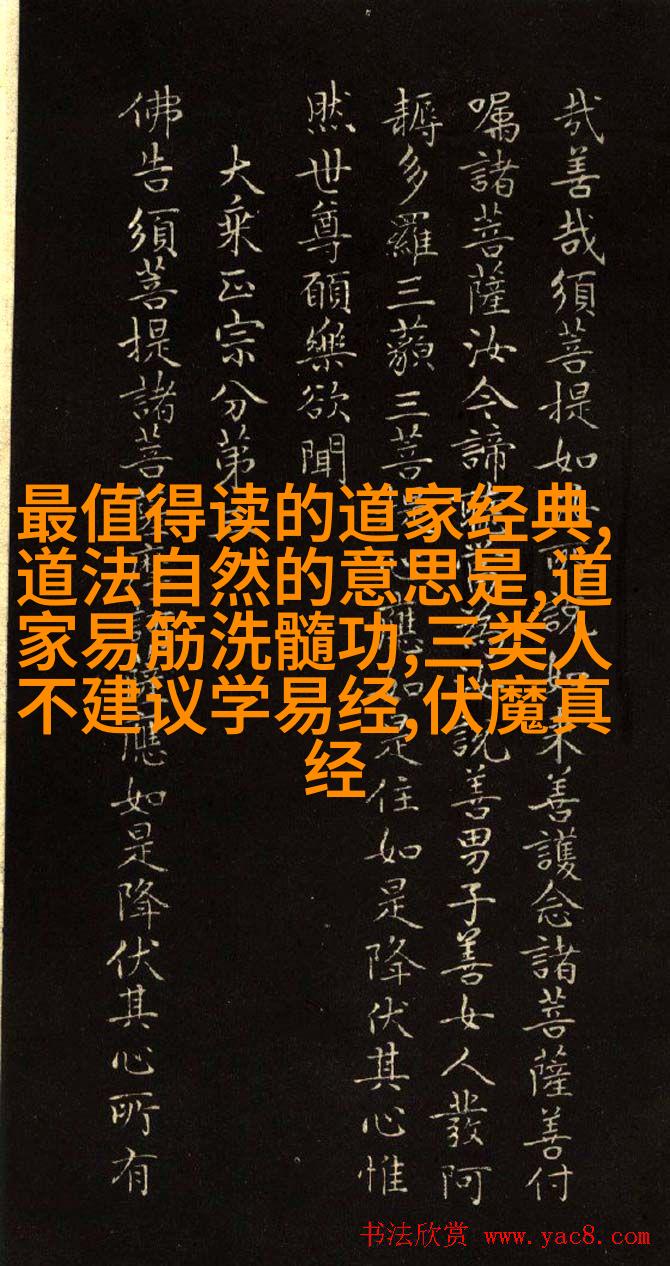 哉善哉須菩提如所說如來善護念諸菩薩善付
囑諸菩薩汝今諦聽當為汝說善男子善女人發阿
耨多羅三藐三菩提心應如是住如是降伏其心惟
然世尊願樂欲聞
大乘正宗分第三
佛告須菩提諸菩薩摩訶薩應如是降伏其心所有
最值得读的道家经典,
道法自然的意思是,道
家易筋洗髓功,三类人
不建议学易经,伏魔真
经
书法欣赏 www.yac8.com